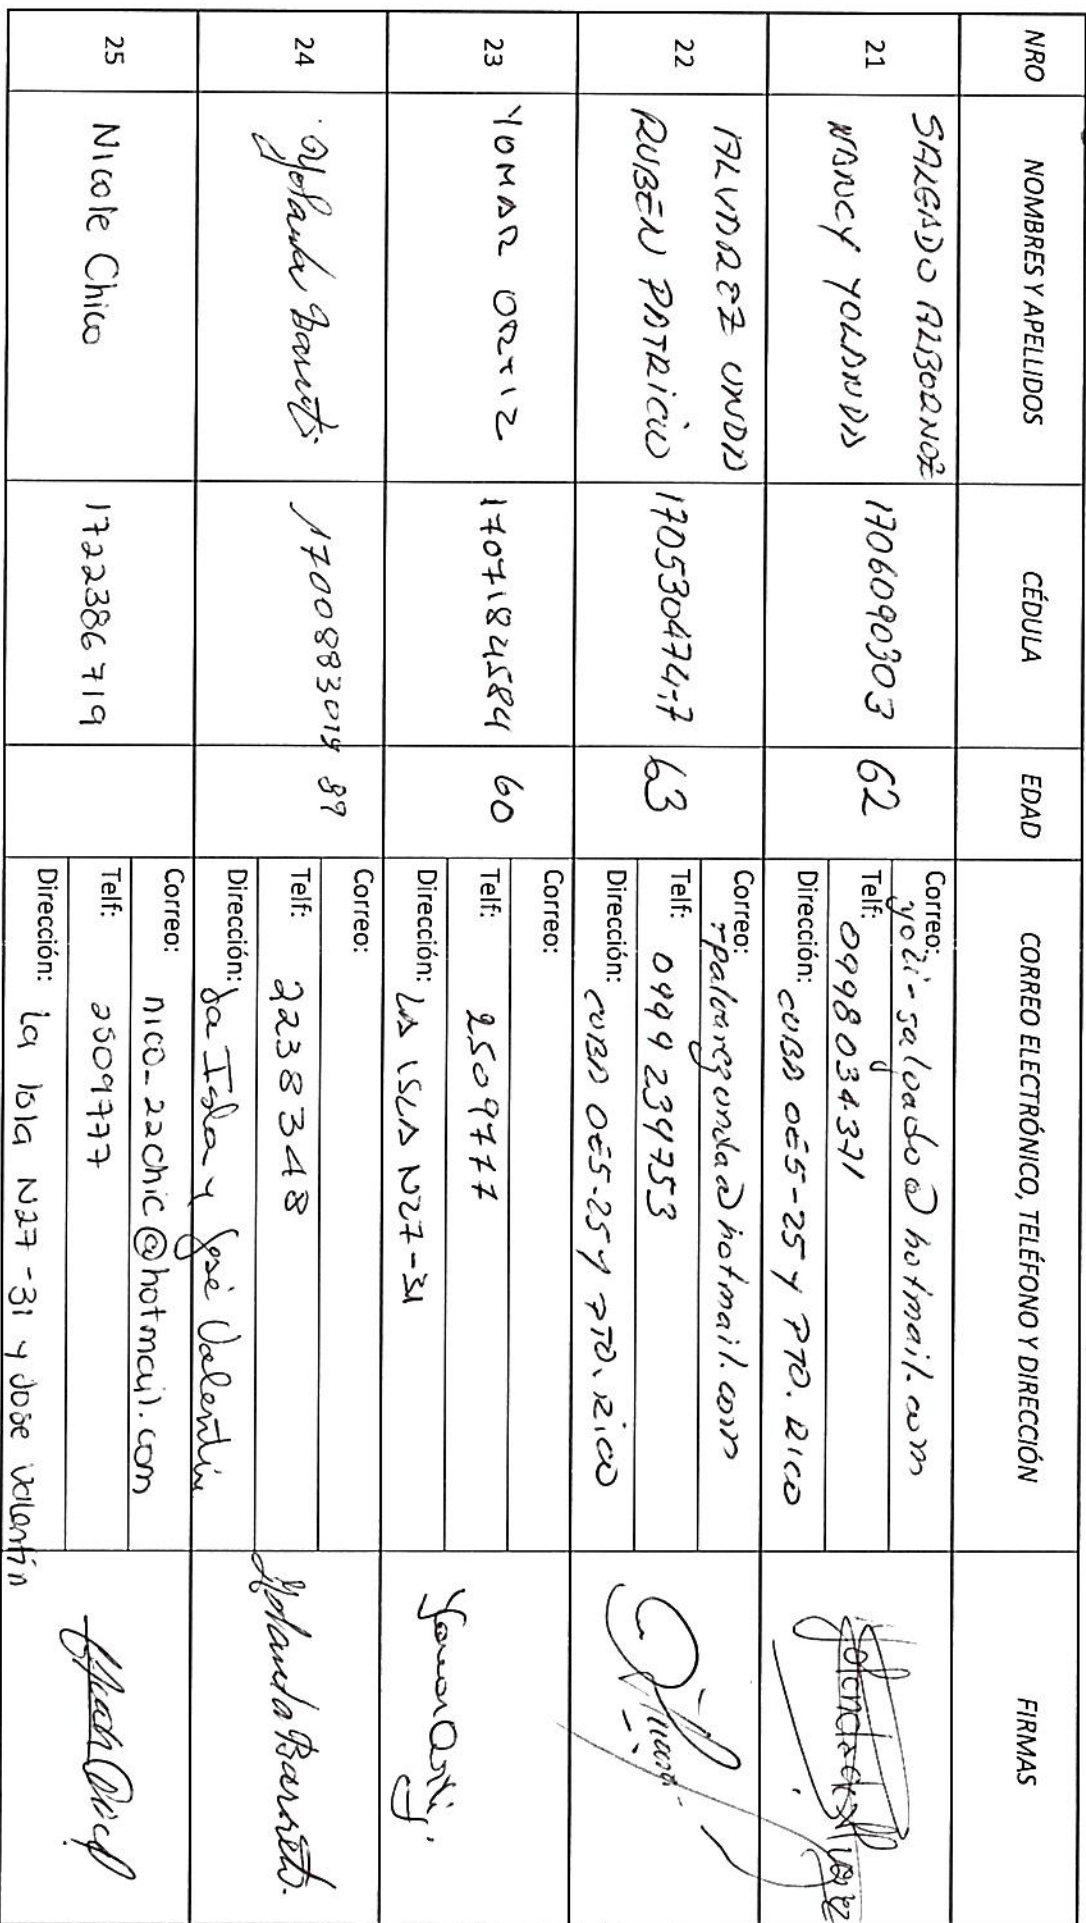 NRO NOMBRES Y APELLIDOS CÉDULA EDAD CORREO ELECTRÓNICO, TELÉFONO Y DIRECCIÓN FIRMAS
21
SALGADO ALBORNOZ
NANCY YOLANDA
1706090303
62
Correo: yoli-salgado@hotmail.com
Telf: 0998034371
Dirección: CUBA OE5-25 Y PTO. RICO
22
ALVAREZ UNDA
RUBEN PATRICIO
170530474-7
63
Correo: rpalvarezunda@hotmail.com
Telf: 0999239753
Dirección: CUBA OE5-25 Y PTO. RICO
23
YOMAR ORTIZ
1707184584
60
Correo:
Telf: 2509777
Dirección: LA ISLA N27-31
Yomar Ortiz
24
Yolanda Barreto
1700883019
89
Correo:
Telf: 2238348
Dirección: La Isla y José Valentín
Yolanda Barreto.
25
Nicole Chico
1722386719
Correo: nico_22chic@hotmail.com
Telf: 2509777
Dirección: la Isla N27-31 y Jose Valentín